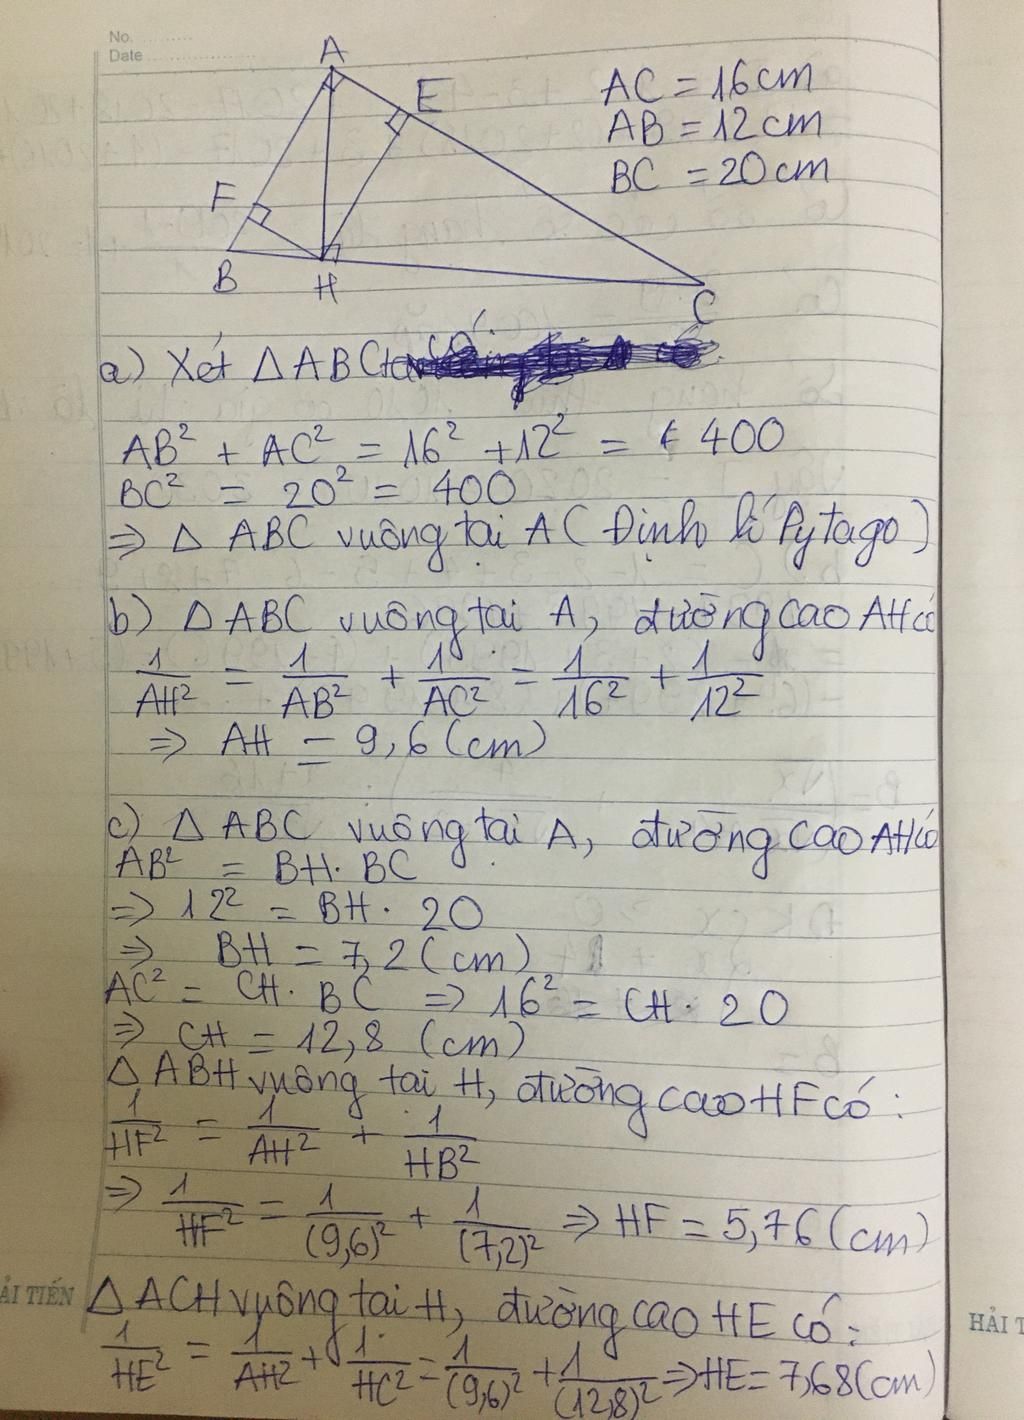 No.
Date
A
E
F
B
H
C
AC = 16cm
AB = 12cm
BC = 20cm
a) Xét △ABC
AB² + AC² = 16² + 12² = 400
BC² = 20² = 400
⇒ △ ABC vuông tại A (Định lí Pytago)
b) △ ABC vuông tại A, đường cao AH có
1/AH² = 1/AB² + 1/AC² = 1/16² + 1/12²
⇒ AH = 9,6 (cm)
c) △ ABC vuông tại A, đường cao AH có
AB² = BH. BC
⇒ 12² = BH. 20
⇒ BH = 7,2 (cm)
AC² = CH. BC ⇒ 16² = CH. 20
⇒ CH = 12,8 (cm)
△ ABH vuông tại H, đường cao HF có:
1/HF² = 1/AH² + 1/HB²
⇒ 1/HF² = 1/(9,6)² + 1/(7,2)² ⇒ HF = 5,76 (cm)
△ ACH vuông tại H, đường cao HE có:
1/HE² = 1/AH² + 1/HC² = 1/(9,6)² + 1/(12,8)² ⇒ HE = 7,68 (cm)
ẢI TIẾN
HẢI T